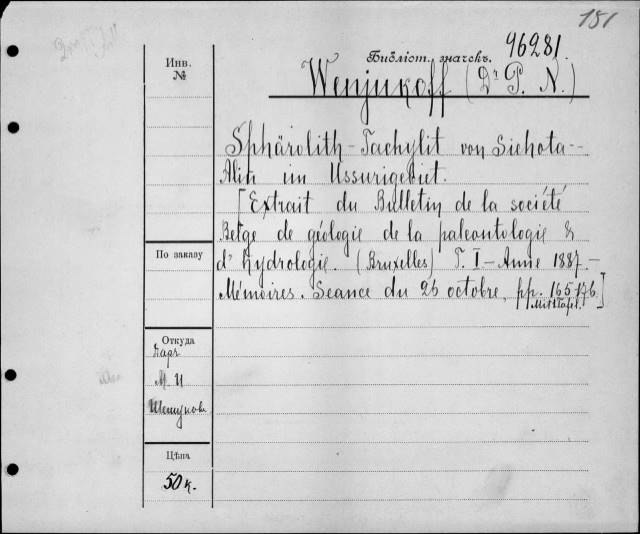 151
96281.
Инв.
№
Библіот. значекъ.
Wenjukoff (Dr P. N.)
Sphärolith-Tachylit von Sichota-
Alin im Ussurigebiet.
[Extrait du Bulletin de la société
Belge de géologie de la paleontologie &
d'hydrologie. (Bruxelles) T. I – Anne 1887. –
Mémoires. Seance du 25 octobre, pp. 165-176.
Mit 1 Tafel.]
По заказу
Откуда
М. И
Цѣна
50 к.